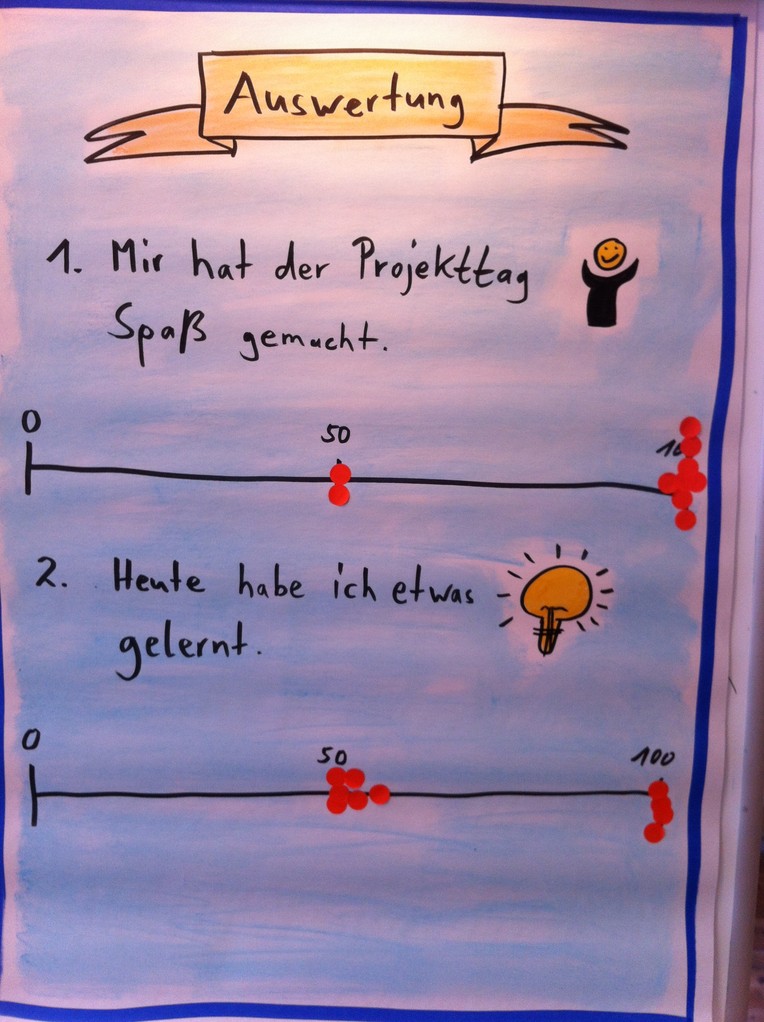 Auswertung
1. Mir hat der Projekttag
Spaß gemacht.
0
50
2. Heute habe ich etwas
gelernt.
0
50
100